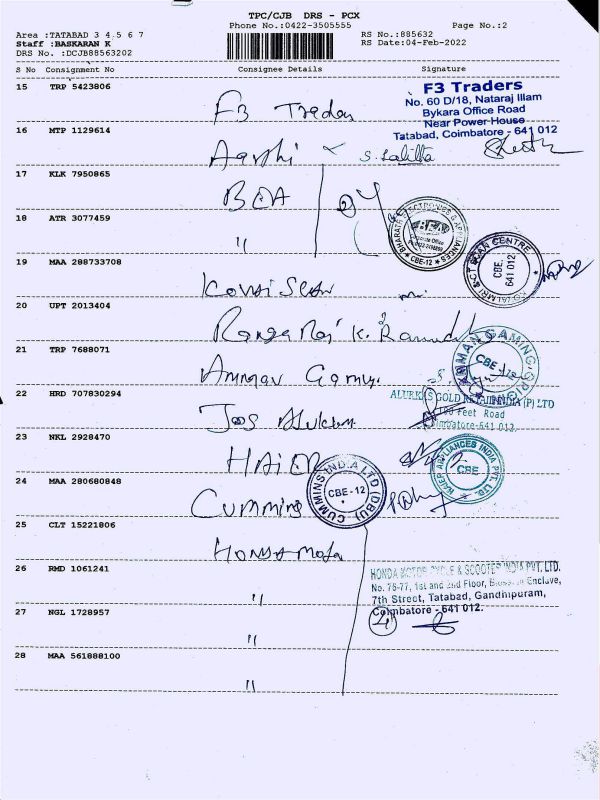 TPC/CJB DRS - PCX
Phone No.:0422-3505555
Page No.:2
Area :TATABAD 3 4 5 6 7
RS No.:885632
Staff :BASKARAN K
RS Date:04-Feb-2022
DRS No. :DCJB88563202
S No Consignment No Consignee Details Signature
15 TRP 5423806
F3 Traders
F3 Traders
No. 60 D/18, Nataraj Illam
Bykara Office Road
Near Power House
Tatabad, Coimbatore - 641 012
16 MTP 1129614
S. Lalitha
17 KLK 7950865
BEA
2
BHARATH ELECTRONICS & APPLIANCES
BEA
CBE-12
18 ATR 3077459
"
19 MAA 288733708
CT SCAN CENTRE
CBE.
641 012
20 UPT 2013404
Ranga Raj K.
21 TRP 7688071
Amman Gaming
AMMAN GAMING
CBE -12
22 HRD 707830294
Jos Alukkas
GOLD RETAIL INDIA (P) LTD
100 Feet Road
Coimbatore-641 012.
23 NKL 2928470
HAIER
HAIER APPLIANCES INDIA PVT. LTD.
CBE
24 MAA 280680848
Cummins
CUMMINS INDIA LTD (DBU)
CBE -12
25 CLT 15221806
Honda Motor
26 RMD 1061241
"
HONDA MOTOR CYCLE & SCOOTER INDIA PVT. LTD.
No. 76-77, 1st and 2nd Floor, Enclave,
7th Street, Tatabad, Gandhipuram,
Coimbatore - 641 012.
27 NGL 1728957
"
28 MAA 561888100
"